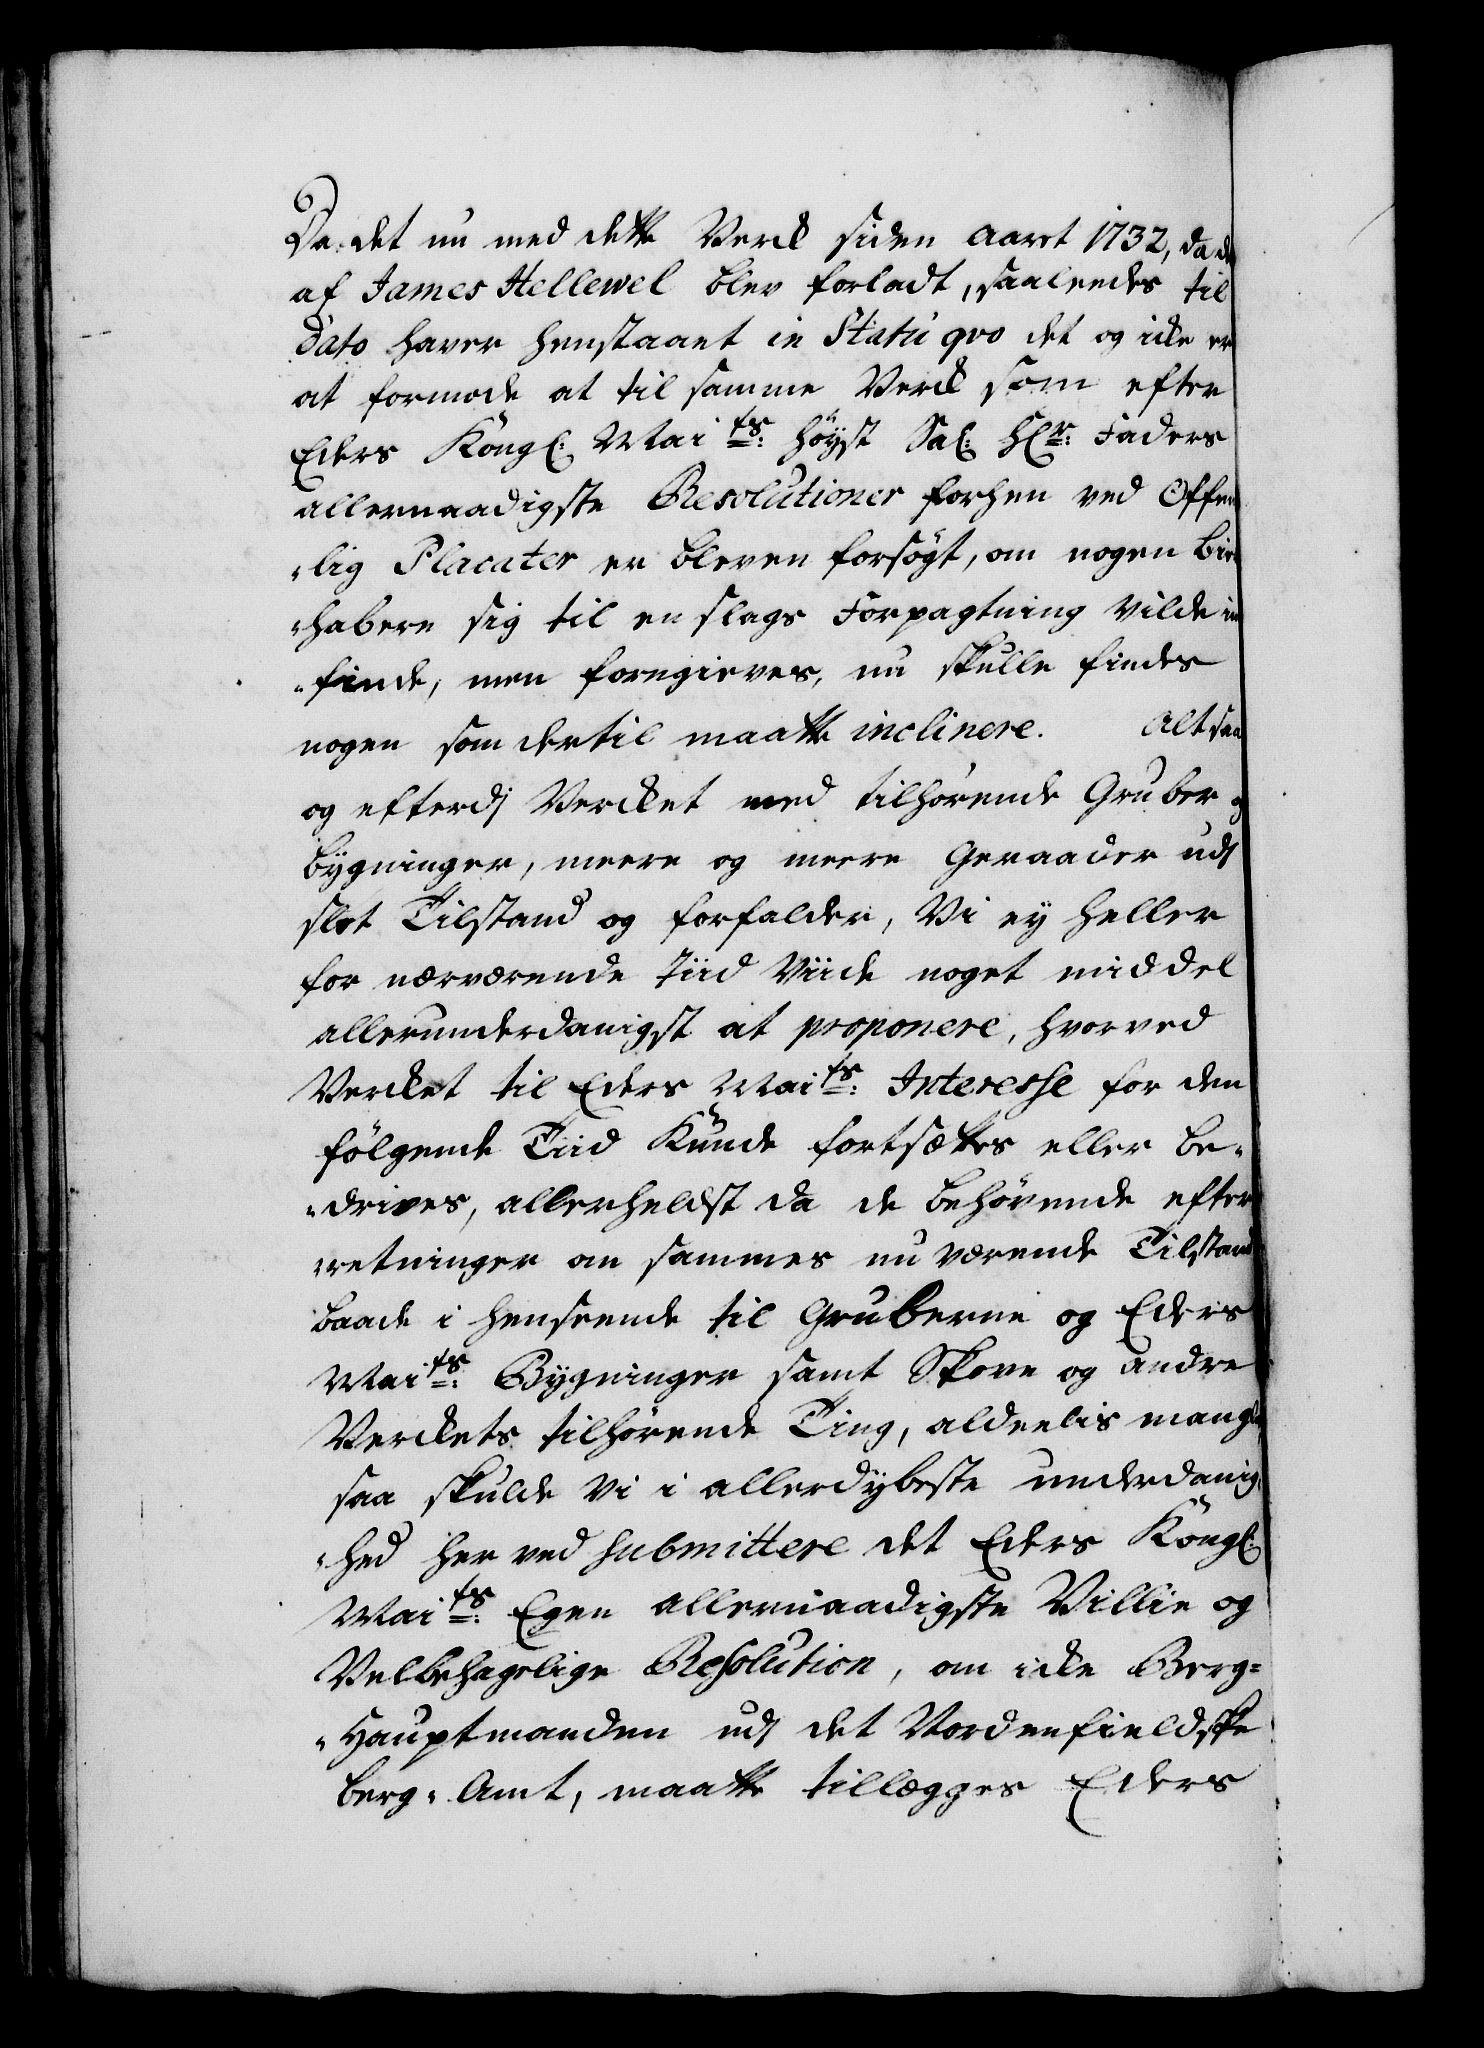 Da det nu med dette Verck siden Aaret 1732, da
af James Hellewel blev forladt, saaleedes til
Dato haver henstaaet in Statu qvo det og icke er
at formode at til samme Verck som efter
Eders Kongl: Maits: høyst Sal: Hr: Faders
allernaadigste Resolutioner forhen ved Offen
lig Placater er bleven forsøgt, om nogen
habere sig til en slags Forpagtning vilde
finde, men forgieves, nu skulle findes
nogen som dertil maatte inclinere. Altsaa
og efterdj Vercket med tilhørende Gruber
Bygninger, meere og meere Geraader udj
slet Tilstand og forfalder, Vi ey heller
for nærværende Tiid Viide noget middel
allerunderdanigst at proponere, hvorved
Vercket til Eders Maits: Interesse for den
følgende Tiid Kunde fortsættes eller be-
drives, allerheldst da de behøvende efter
retninger om sammes nu værende Tilstand
baade i henseende til Gruberne og Eders
Maits: Bygninger samt Skove og andre
Verckets tilhørende Ting, aldeelis
saa skulde vi i allerdybeste underdanig
hed her ved submittere det Eders Kongl:
Maits: Egen allernaadigste Villie og
Velbehagelige Resolution, om icke Berg-
Hauptmanden udj det Nordenfieldske
Berg-Amt, maatte tillægges Eders